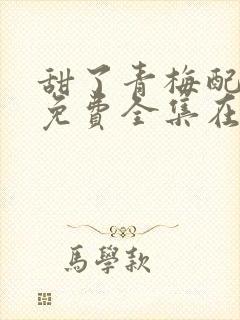 甜了青梅配
免費全集在
馬學款